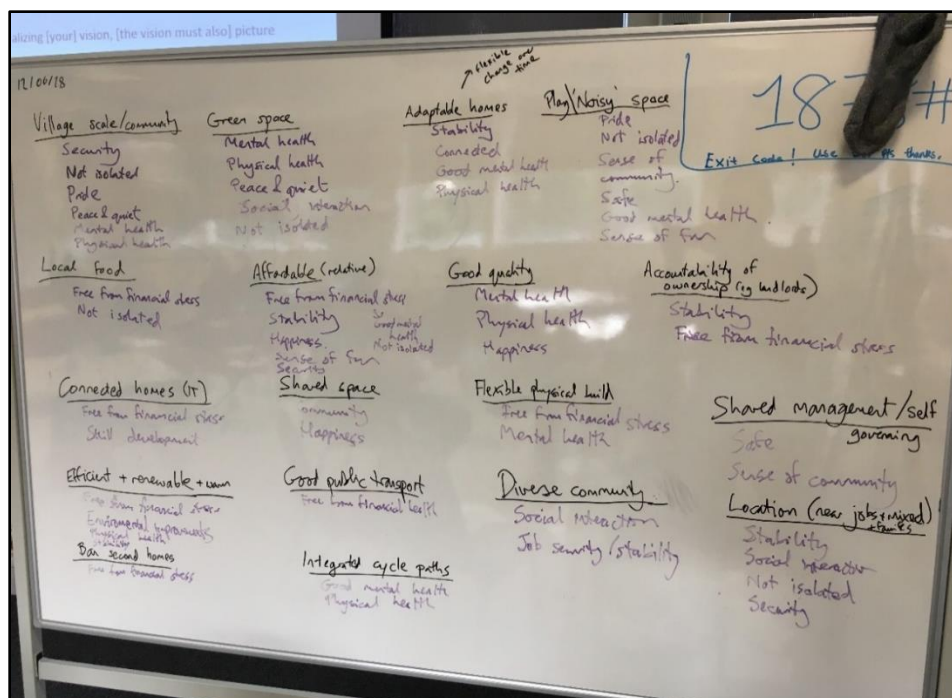 alizing [your] vision, [the vision must also] picture
12/06/18
flexible
change over
time
Village scale/community
Security
Not isolated
Pride
Peace & quiet
Mental health
Physical health
Green space
Mental health
Physical health
Peace & quiet
Social interaction
Not isolated
Adaptable homes
Stability
Connected
Good mental health
Physical health
Play/'Noisy' space
Pride
Not isolated
Sense of
community.
Safe
Good mental health.
Sense of fun
187
#
Exit code! Use
thanks.
Local food
Free from financial stress
Not isolated
Affordable (relative)
Free from financial stress
Stability
Happiness
Sense of fun
Security
Good mental
health
Not isolated
Good quality
Mental health
Physical health
Happiness
Accountability of
ownership (eg landlords)
Stability
Free from financial stress
Connected homes (IT)
Free from financial stress
Skill development
Shared space
ommunity
Happiness
Flexible physical build
Free from financial stress
Mental health
Shared management/self
governing
Safe
Sense of community
Efficient + renewable + warm
Free from financial stress
Environmental improvements
Physical health
Ban second homes
Free from financial stress
Good public transport
Free from financial health
Integrated cycle paths
Good mental health
Physical health
Diverse community
Social interaction
Job security/stability
Location (near jobs + mixed
+ families
Stability
Social interaction
Not isolated
Security